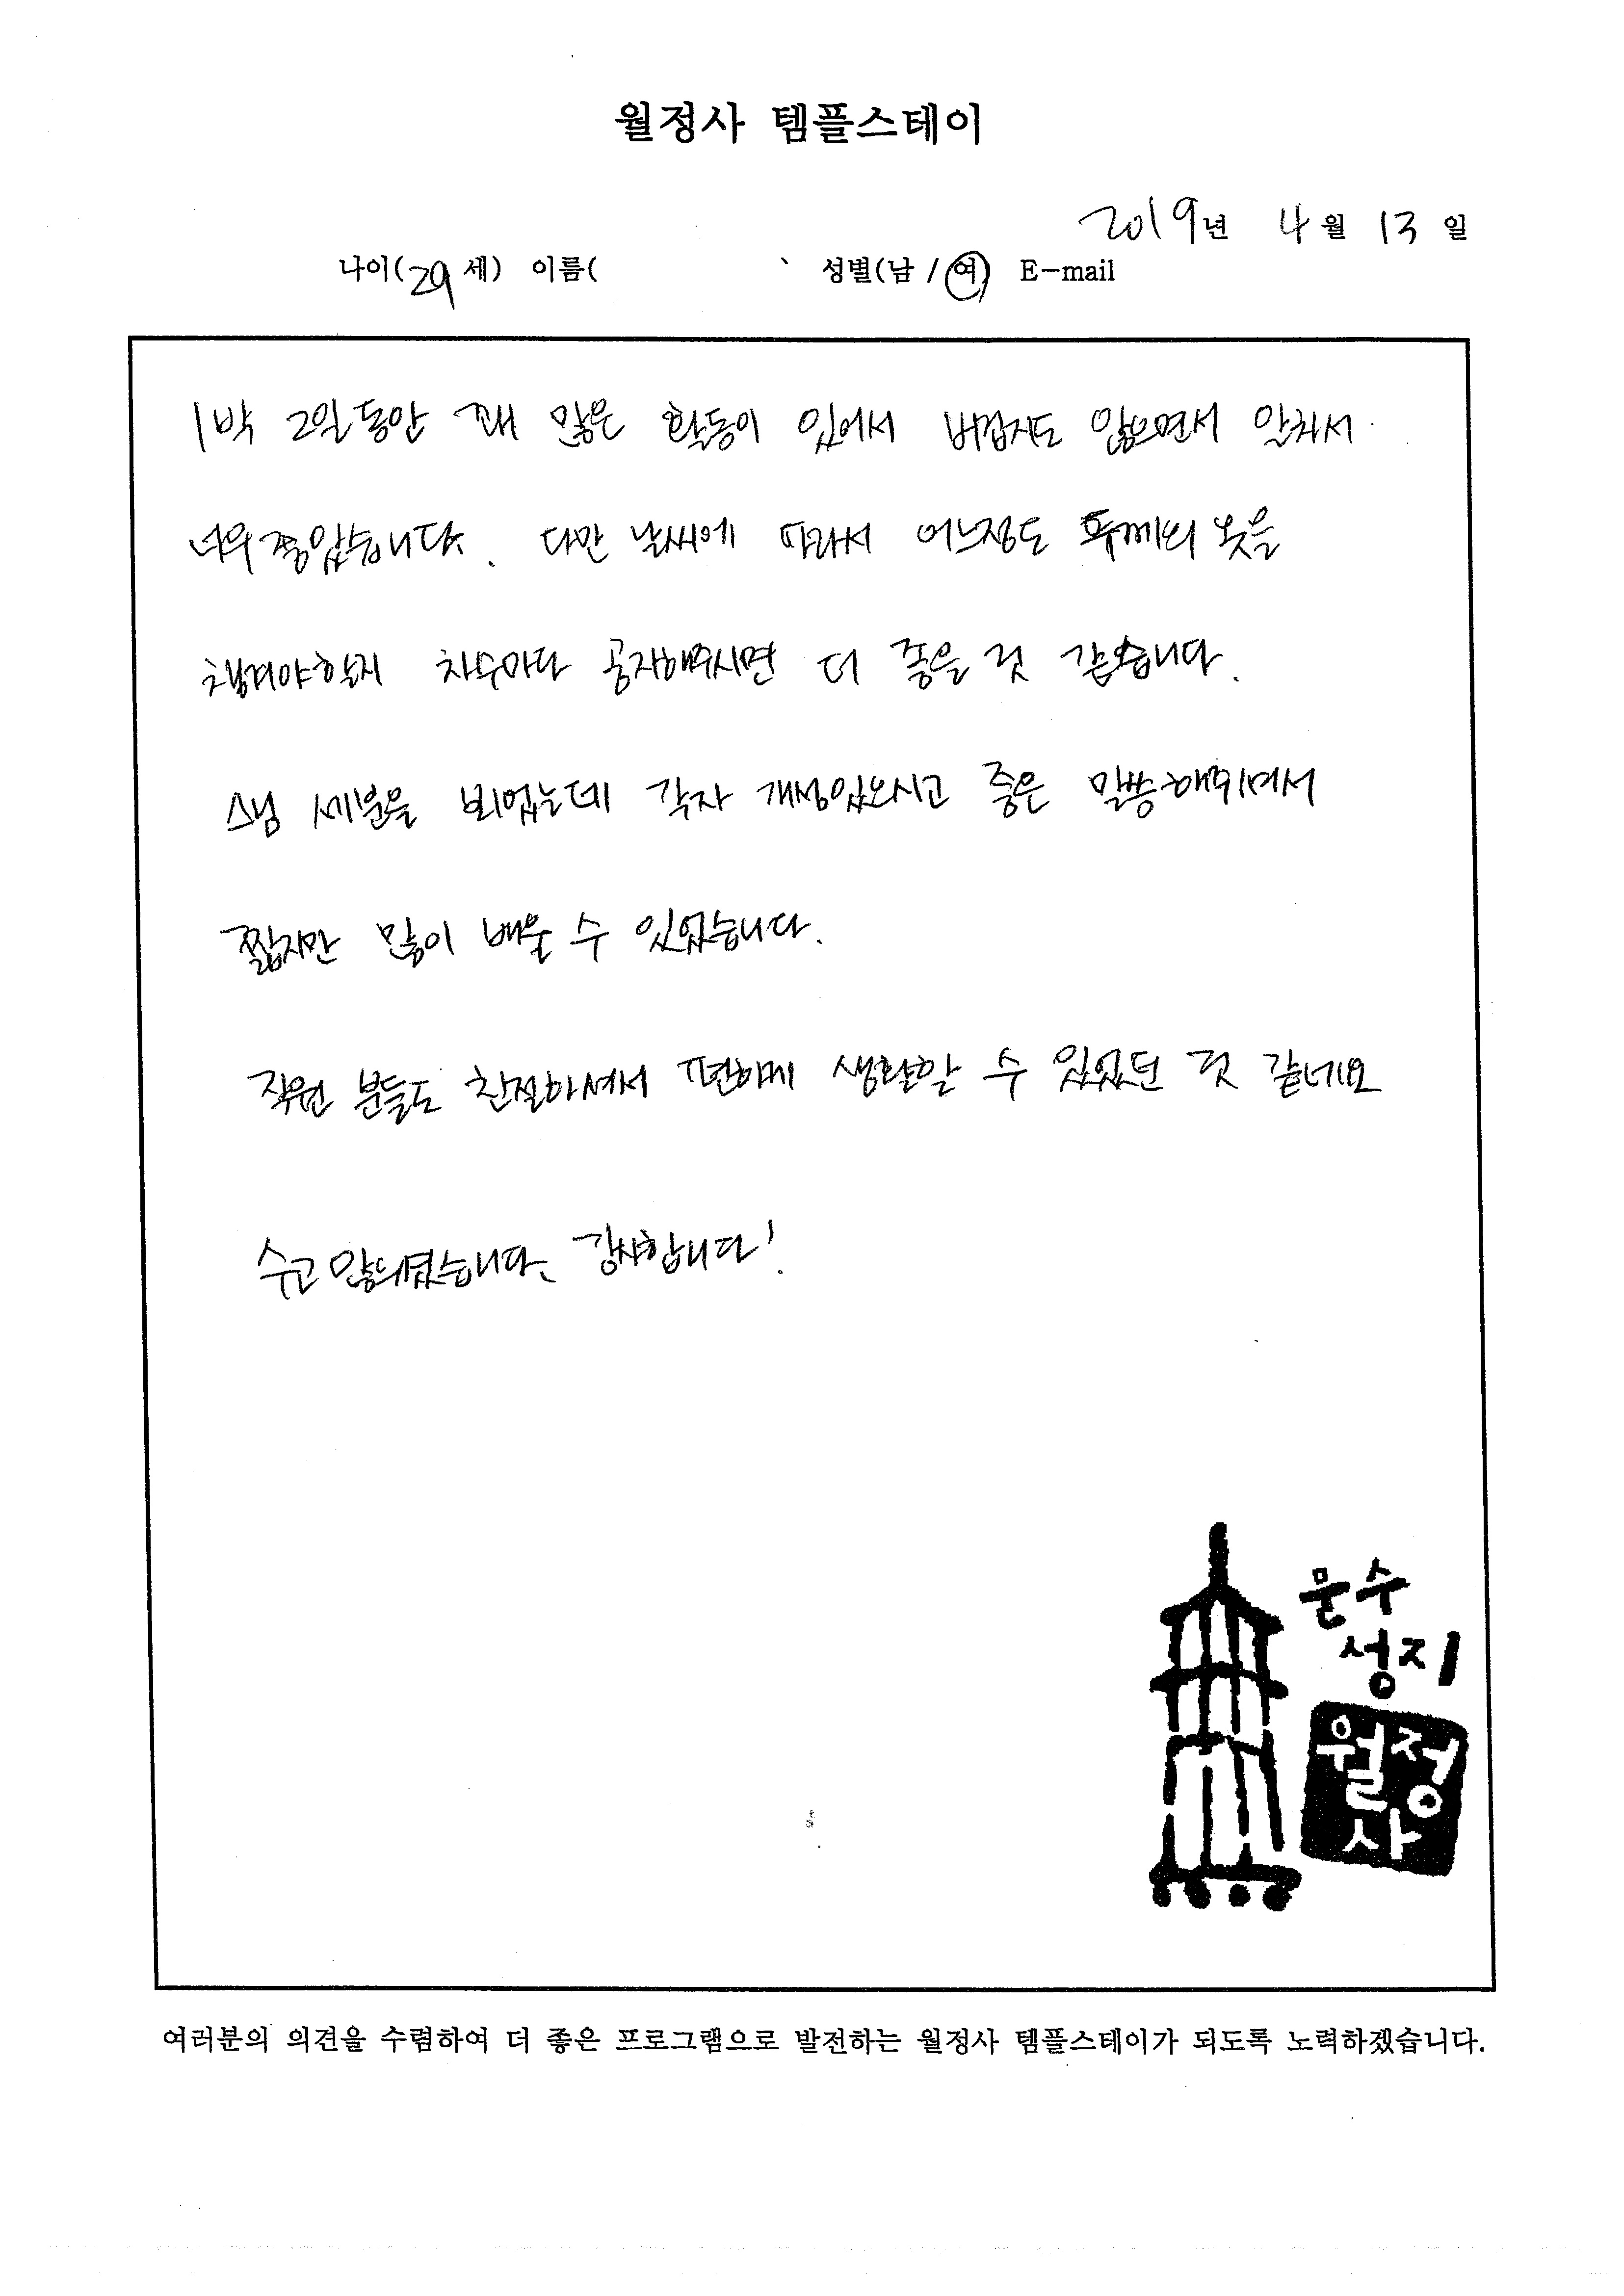 월정사 템플스테이
2019년 4월 13일
나이(29세) 이름( 성별(남 / 여) E-mail
1박 2일동안 꽤 많은 활동이 있어서 버겁지도 않으면서 알차서
너무 좋았습니다. 다만 날씨에 따라서 어느정도 두께의 옷을
챙겨야할지 차수마다 공지해주시면 더 좋을 것 같습니다.
스님 세분을 뵈었는데 각자 개성있으시고 좋은 말씀해주셔서
짧지만 많이 배울 수 있었습니다.
직원 분들도 친절하셔서 편하게 생활할 수 있었던 것 같네요
수고 많으셨습니다. 감사합니다!
문수
성지
월정
사
여러분의 의견을 수렴하여 더 좋은 프로그램으로 발전하는 월정사 템플스테이가 되도록 노력하겠습니다.